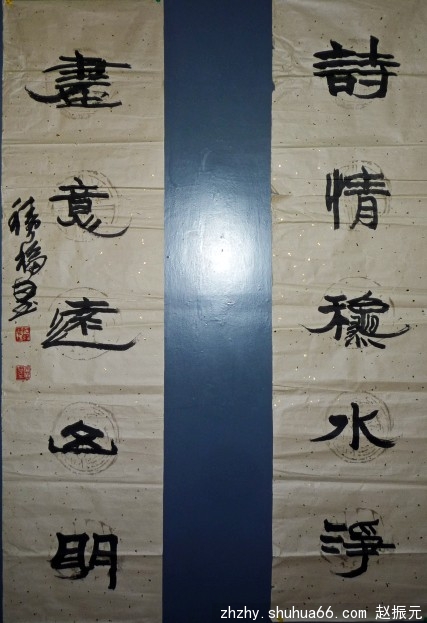 詩情龝水淨
畫意遠山明
zhzhy.shuhua66.com 赵振元